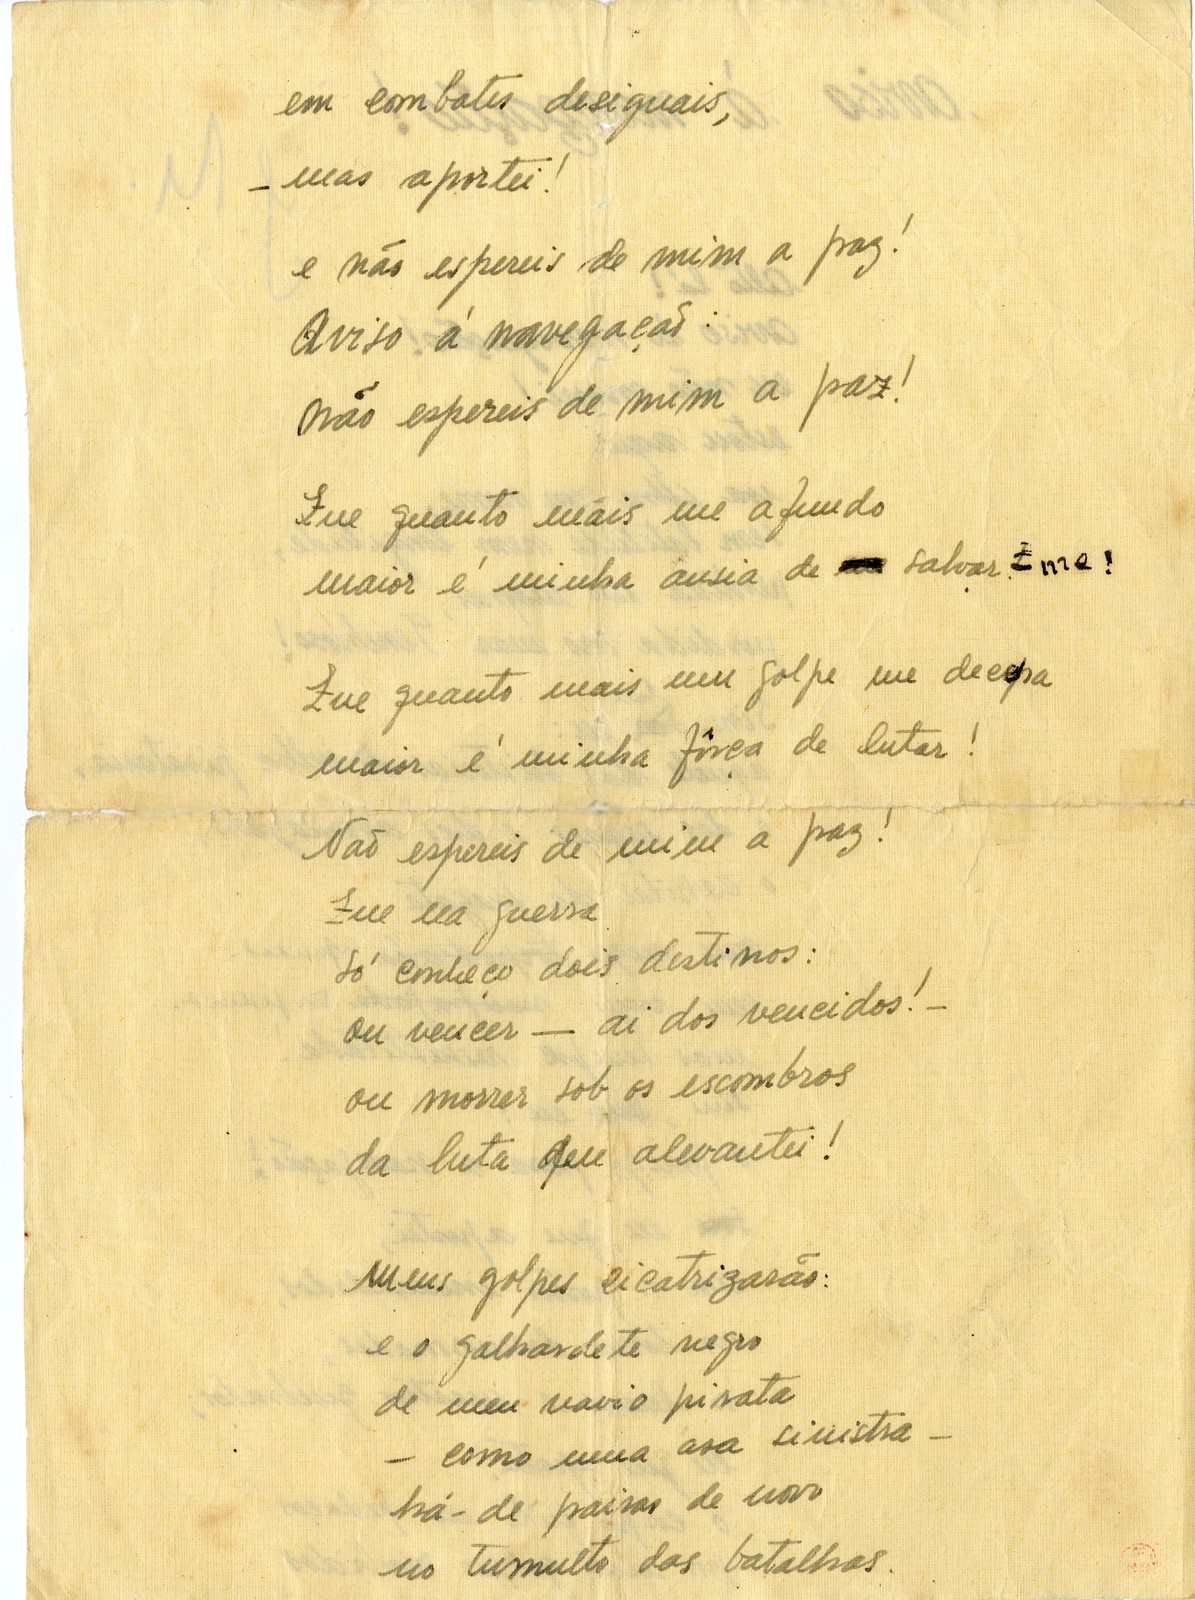 em combates desiguais,
– mas aportei!
e não espereis de mim a paz!
Aviso á navegação:
Não espereis de mim a paz!
Que quanto mais me afundo
maior é minha ansia de salvar-me!
Que quanto mais um golpe me decepa
maior é minha fôrça de lutar!
Não espereis de mim a paz!
Que na guerra
só conheço dois destinos:
ou vencer — ai dos vencidos! –
ou morrer sob os escombros
da luta que alevantei!
Meus golpes cicatrizarão:
e o galhardete negro
de meu navio pirata
– como uma asa sinistra –
há-de pairar de novo
no tumulto das batalhas.